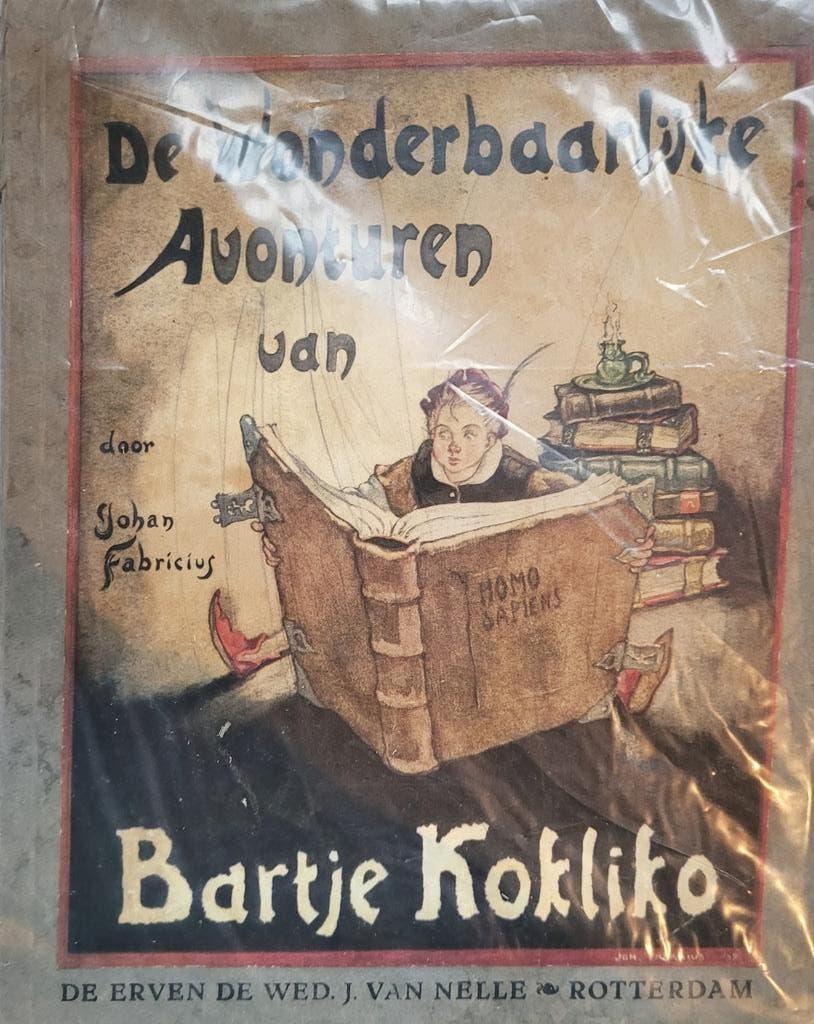 De Wonderbaarlijke
Avonturen
van
door
Johan
Fabricius
HOMO
SAPIENS
Bartje Kokliko
JOH.
DE ERVEN DE WED. J. VAN NELLE ❧ ROTTERDAM